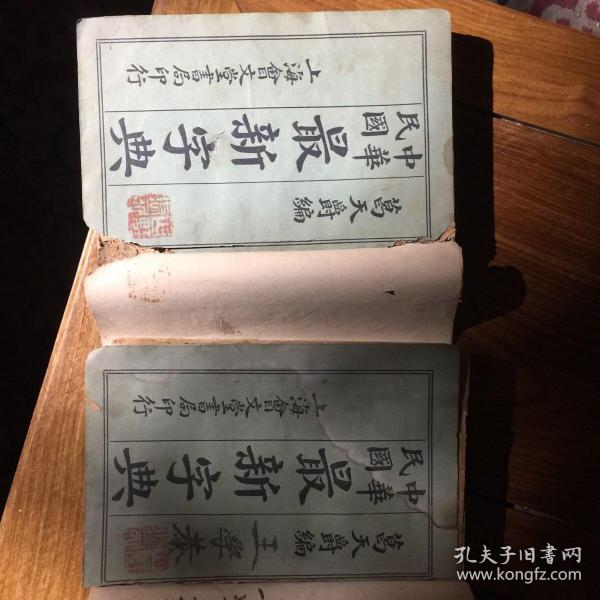 葛天爵編
中華民國最新字典
上海會文堂書局印行
葛天爵編
王學
中華民國最新字典
上海會文堂書局印行
孔夫子旧書网
www.kongfz.com